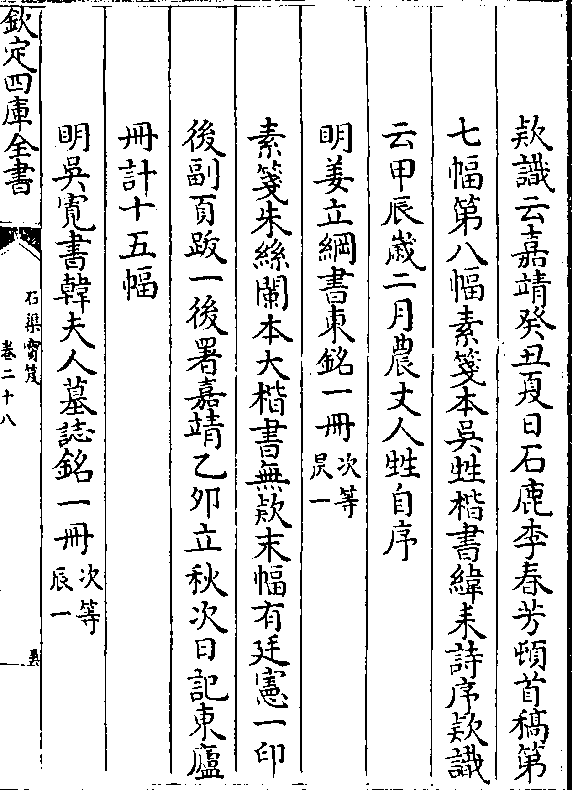 欵識云嘉靖癸丑夏日石鹿李春芳頓首稿第
七幅第八幅素箋本吳甡楷書緯耒詩序欵識
云甲辰歳二月農丈人甡自序
明姜立綱書東銘一冊次等昃一
素箋朱絲闌本大楷書無欵末幅有廷憲一印
後副頁跋一後署嘉靖乙卯立秋次日記東廬
冊計十五幅
明吳寛書韓夫人墓誌銘一冊次等辰一
欽定四庫全書
石渠寶笈
卷二十八